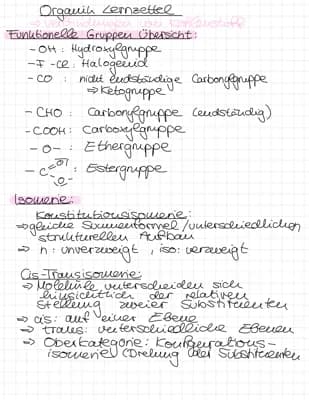 Organik Lernzettel
→ Verbindungen von Kohlenstoff
Funktionelle Gruppen Übersicht:
-OH: Hydroxylgruppe
-F -Cl: Halogenid
-CO : nicht endständige Carbonylgruppe
⇒ Ketogruppe
-CHO: Carbonylgruppe (endständig)
-COOH: Carboxylgruppe
-O- : Ethergruppe
-C O O- : Estergruppe
Isomerie:
Konstitutionsisomerie:
⇒ gleiche Summenformel/unterschiedlichen
strukturellen Aufbau
⇒ n: unverzweigt, iso: verzweigt
Cis-Transisomerie:
⇒ Moleküle unterscheiden sich
hinsichtlich der relativen
Stellung zweier Substituenten
⇒ cis: auf einer Ebene
⇒ trans: unterschiedliche Ebenen
⇒ Oberkategorie: Konfigurations-
isomerie (Drehung der Substituenten